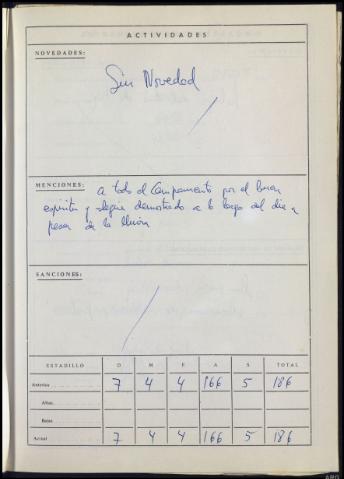 ACTIVIDADES
NOVEDADES:
Sin Novedad
MENCIONES:
a todo el Campamento por el buen
espíritu y alegria demostrado a lo largo del dia a
pesar de la lluvia
SANCIONES:
ESTADILLO D M E A S TOTAL
Anterior 7 4 4 166 5 186
Altas
Bajas
Actual 7 4 4 166 5 186